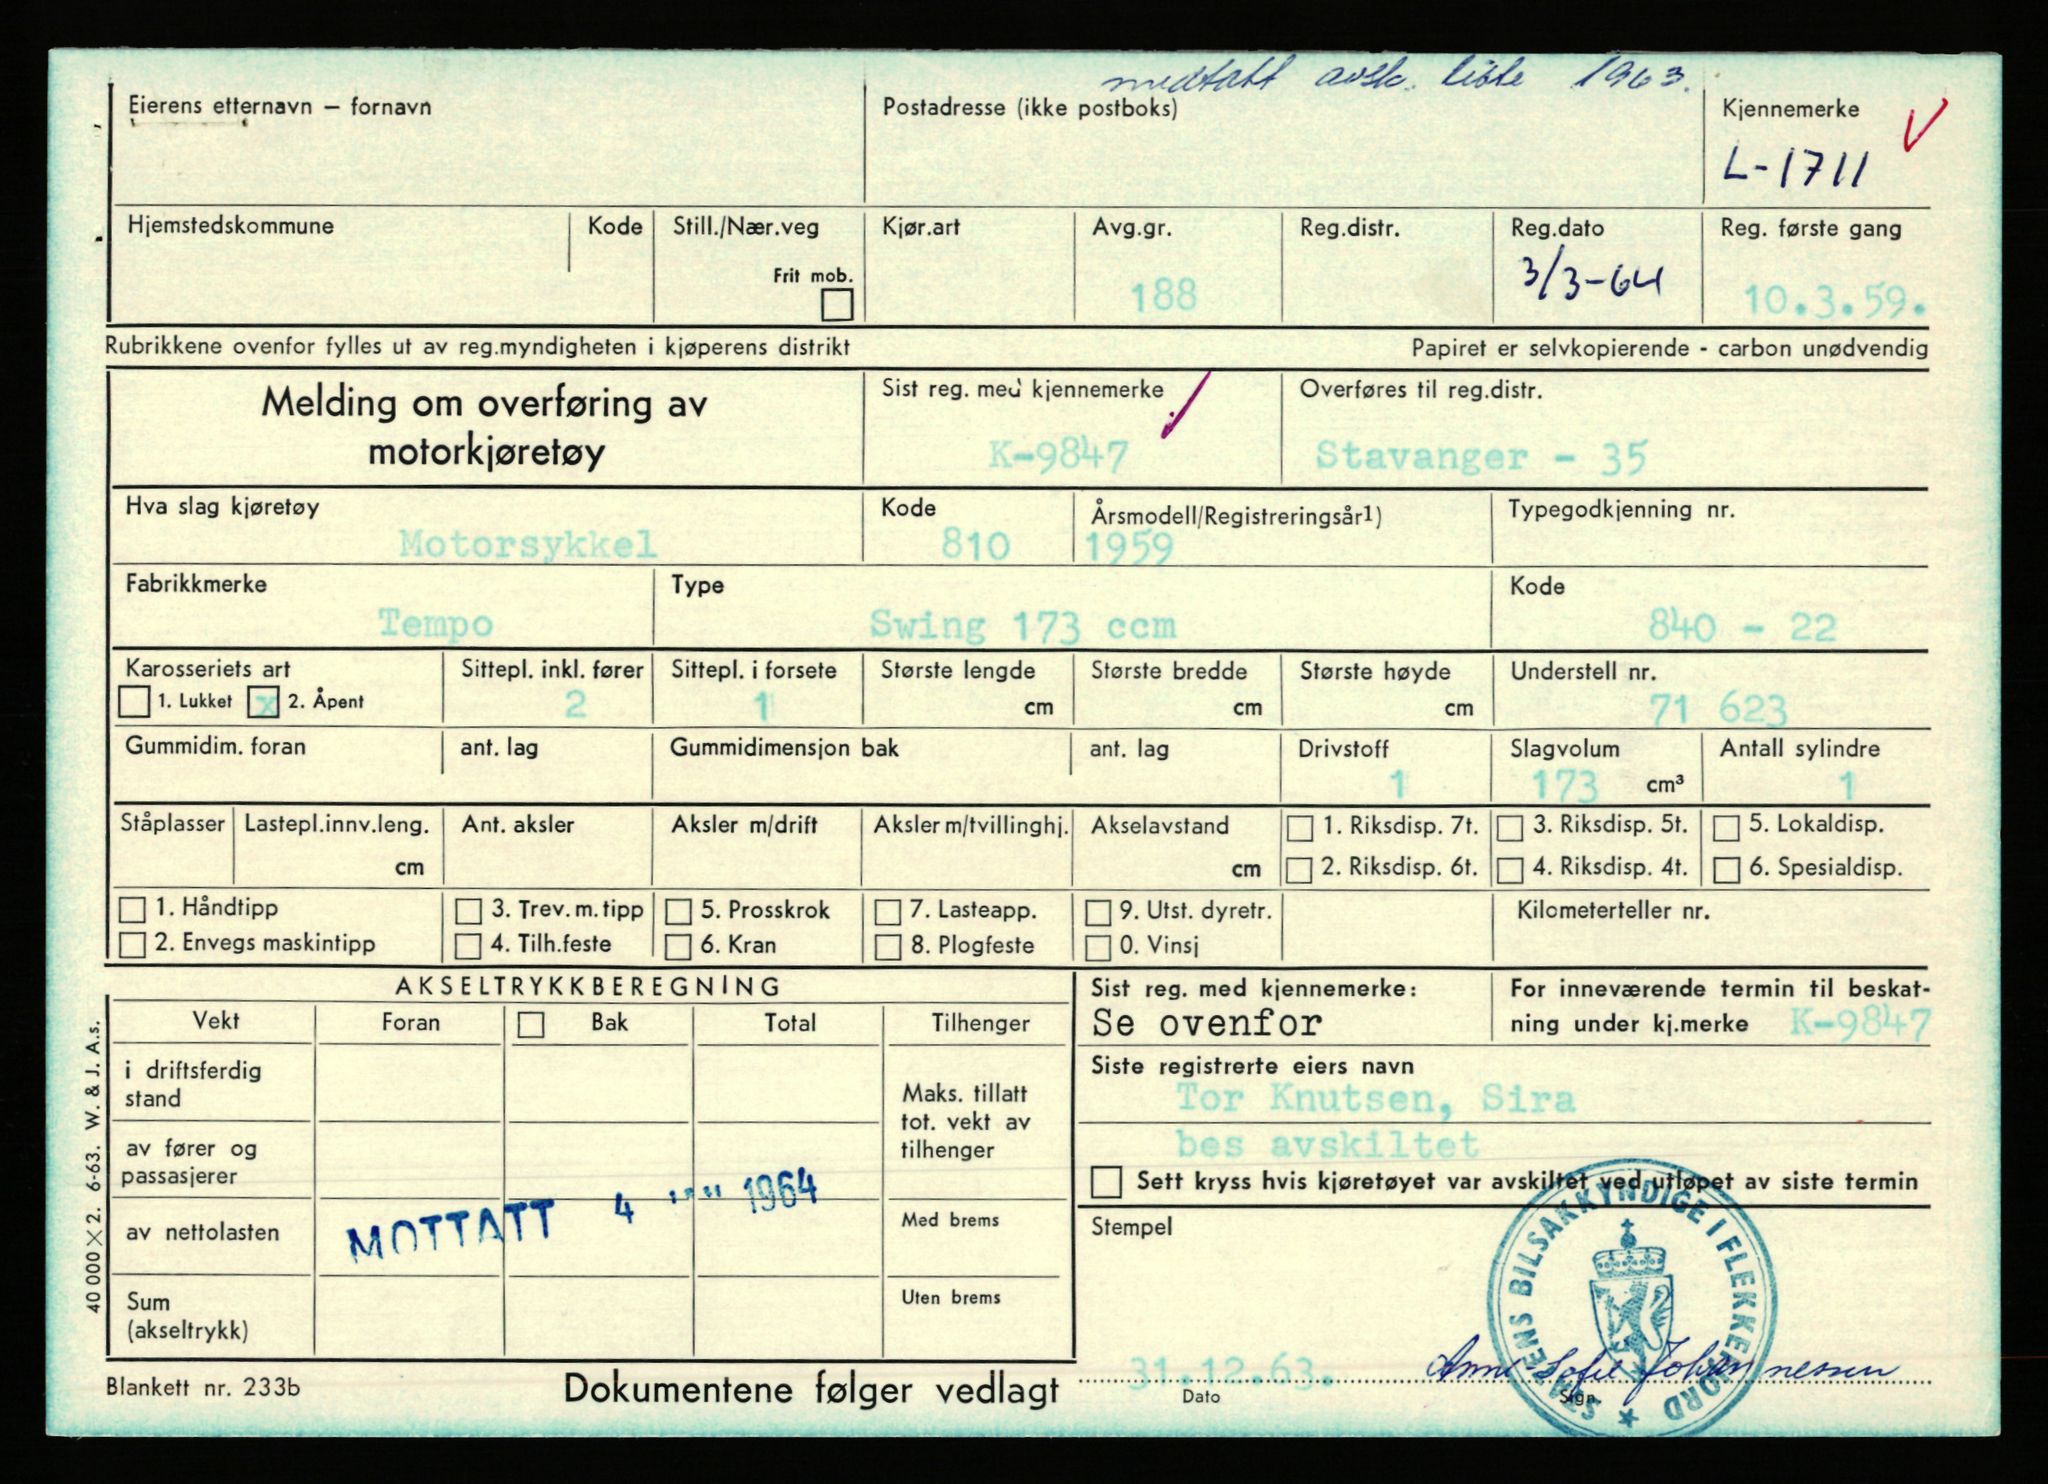 medtatt avsk. liste 1963.
Eierens etternavn – fornavn
Postadresse (ikke postboks)
Kjennemerke
L-1711
Hjemstedskommune
Kode
Still./Nær.veg
Frit mob.
Kjør.art
Avg.gr.
188
Reg.distr.
Reg.dato
3/3-64
Reg. første gang
10.3.59.
Rubrikkene ovenfor fylles ut av reg.myndigheten i kjøperens distrikt
Papiret er selvkopierende - carbon unødvendig
Melding om overføring av
motorkjøretøy
Sist reg. med kjennemerke
K-9847
Overføres til reg.distr.
Stavanger - 35
Hva slag kjøretøy
Motorsykkel
Kode
810
Årsmodell/Registreringsår1)
1959
Typegodkjenning nr.
Fabrikkmerke
Tempo
Type
Swing 173 ccm
Kode
840 - 22
Karosseriets art
1. Lukket x 2. Åpent
Sittepl. inkl. fører
2
Sittepl. i forsete
1
Største lengde
cm
Største bredde
cm
Største høyde
cm
Understell nr.
71 623
Gummidim. foran
ant. lag
Gummidimensjon bak
ant. lag
Drivstoff
1
Slagvolum
173 cm³
Antall sylindre
1
Ståplasser
Lastepl.innv.leng.
cm
Ant. aksler
Aksler m/drift
Aksler m/tvillinghj.
Akselavstand
cm
1. Riksdisp. 7t.
2. Riksdisp. 6t.
3. Riksdisp. 5t.
4. Riksdisp. 4t.
5. Lokaldisp.
6. Spesialdisp.
1. Håndtipp
2. Envegs maskintipp
3. Trev. m. tipp
4. Tilh.feste
5. Prosskrok
6. Kran
7. Lasteapp.
8. Plogfeste
9. Utst. dyretr.
0. Vinsj
Kilometerteller nr.
AKSELTRYKKBEREGNING
Vekt
Foran
Bak
Total
Tilhenger
i driftsferdig
stand
av fører og
passasjerer
av nettolasten
Sum
(akseltrykk)
Maks. tillatt
tot. vekt av
tilhenger
Med brems
Uten brems
MOTTATT 4 1964
Sist reg. med kjennemerke:
Se ovenfor
For inneværende termin til beskat-
ning under kj.merke K-9847
Siste registrerte eiers navn
Tor Knutsen, Sira
bes avskiltet
Sett kryss hvis kjøretøyet var avskiltet ved utløpet av siste termin
Stempel
STATENS BILSAKKYNDIGE I FLEKKEFJORD
31.12.63.
Anne-Sofie Johannessen
Dato
Sign.
Blankett nr. 233b
Dokumentene følger vedlagt
40 000 X 2. 6-63. W. & J. A.s.